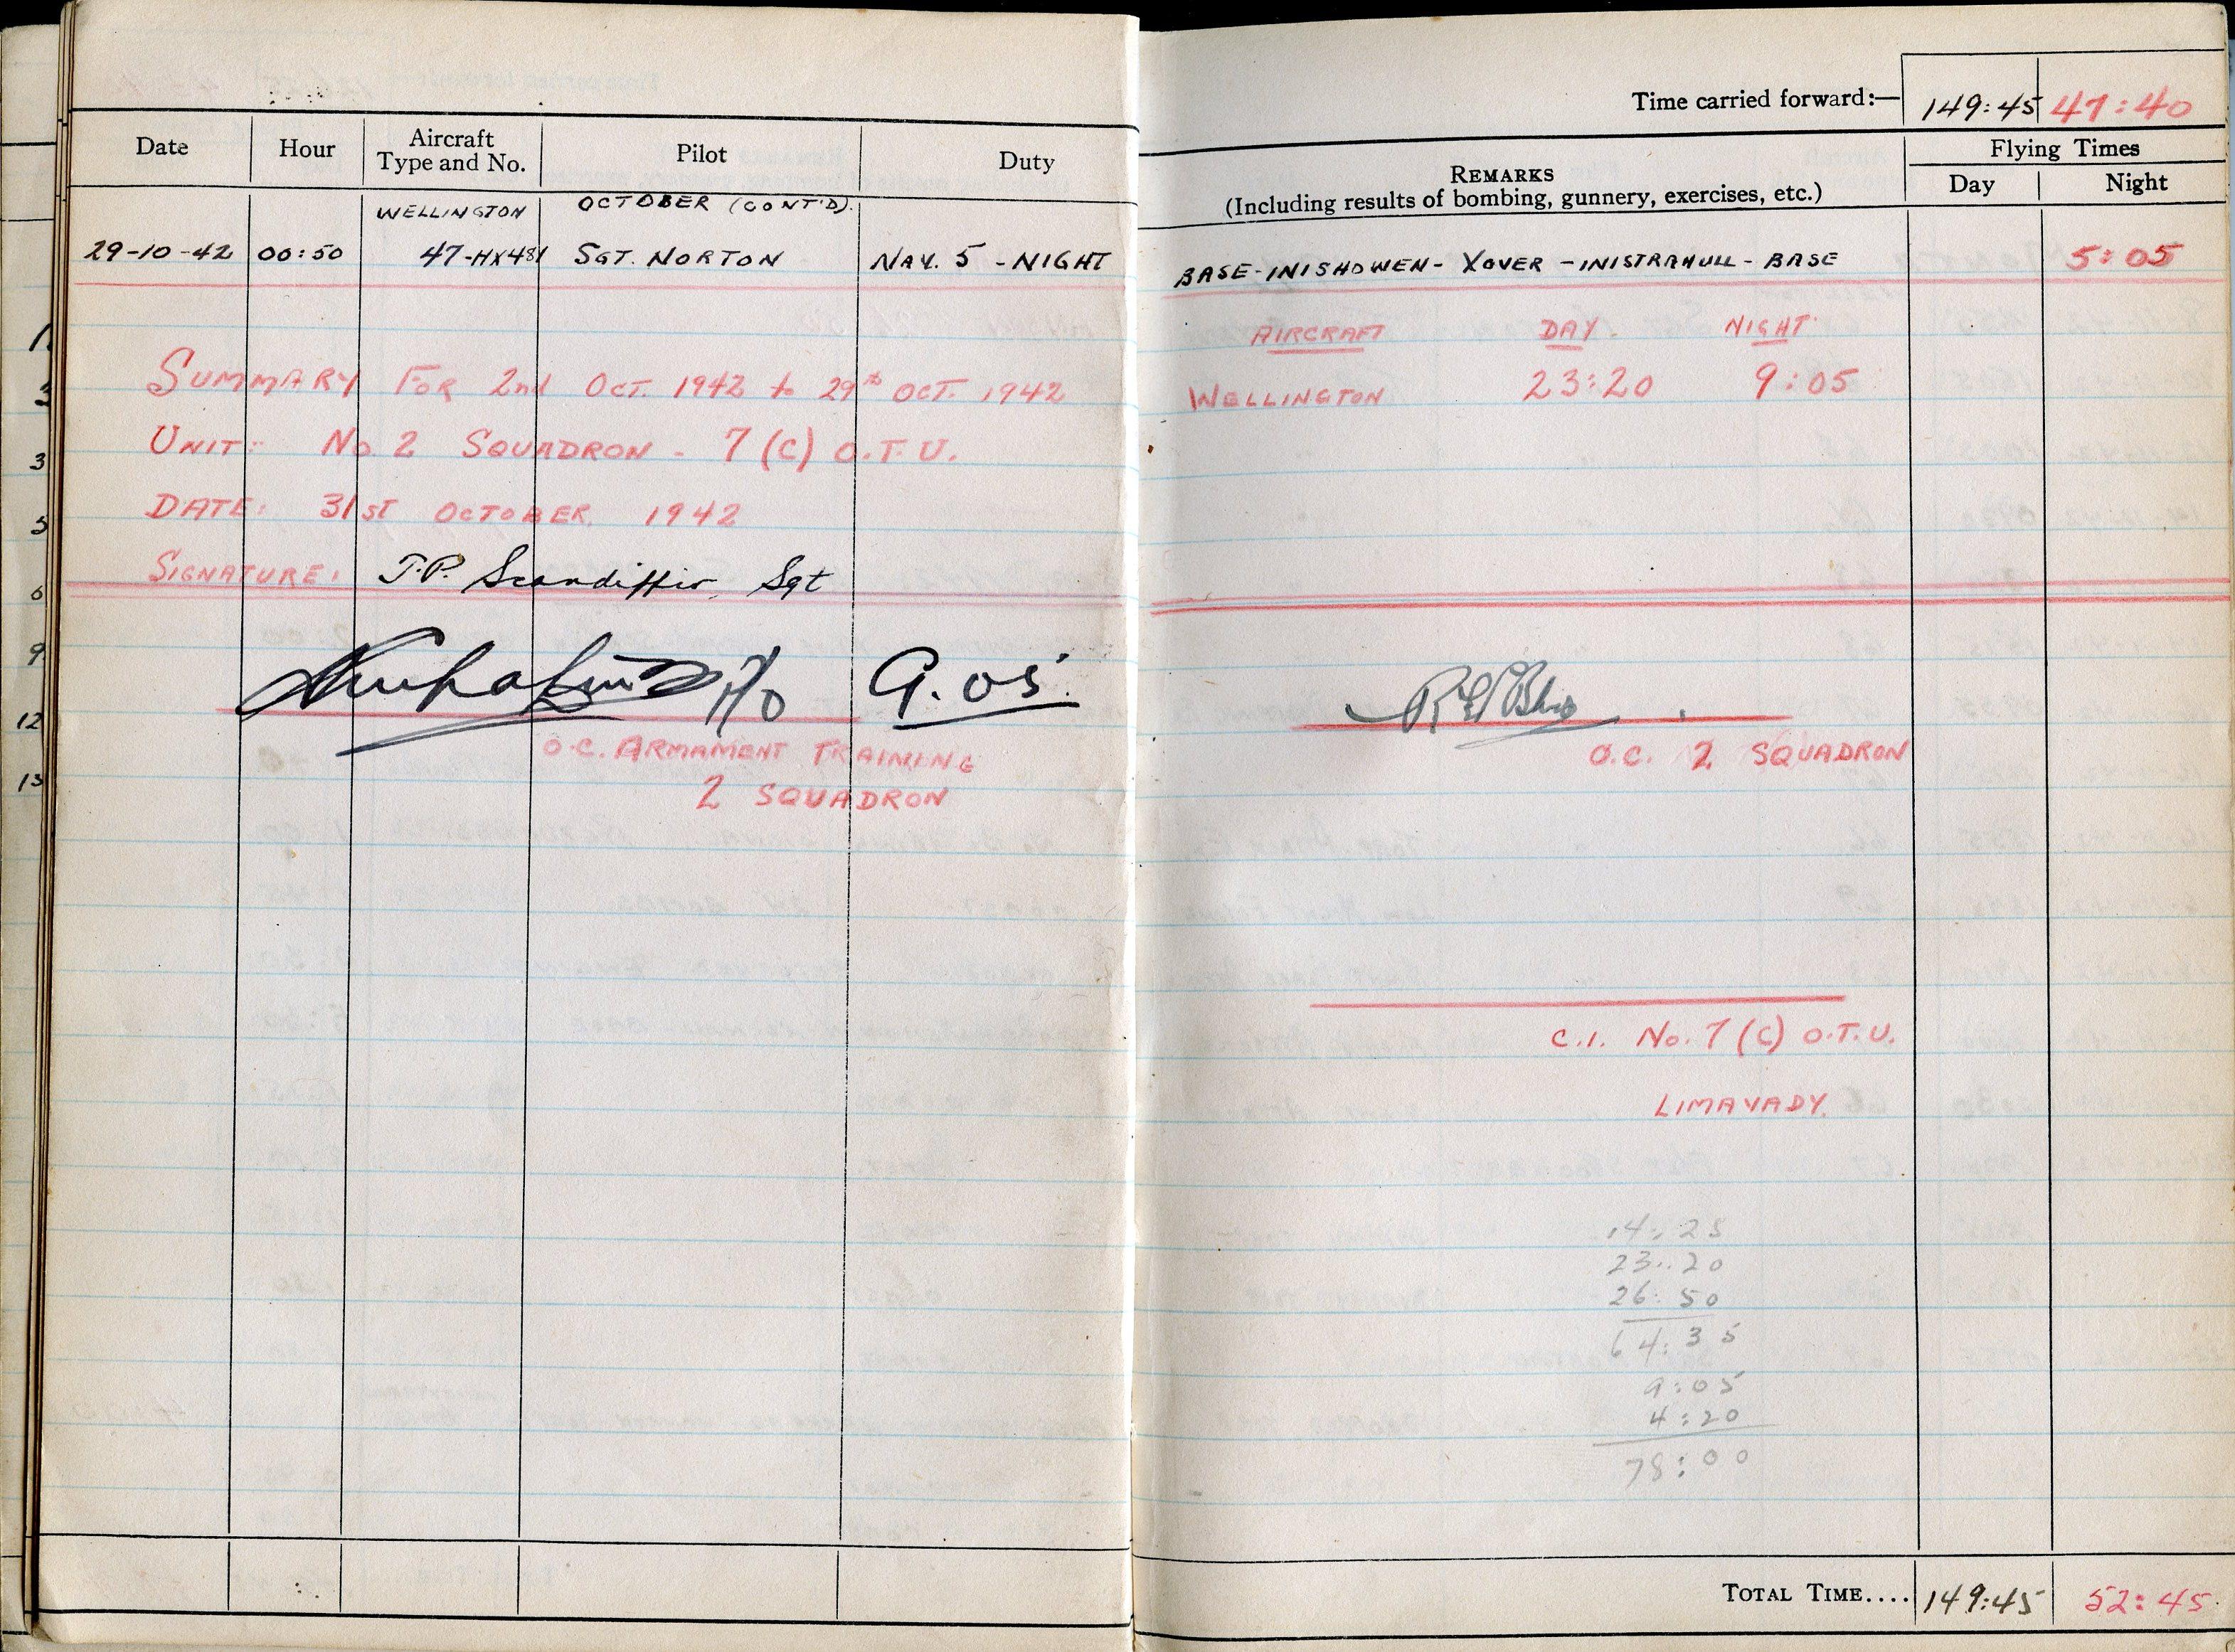 Time carried forward:— 149:45 47:40
Date Hour Aircraft Type and No. Pilot Duty REMARKS (Including results of bombing, gunnery, exercises, etc.) Flying Times Day Night
WELLINGTON OCTOBER (CONT'D).
29-10-42 00:50 47-HX481 SGT. NORTON NAV. 5 - NIGHT BASE-INISHOWEN- XOVER -INISTRAHULL- BASE 5:05
AIRCRAFT DAY. NIGHT.
SUMMARY FOR 2nd OCT. 1942 to 29th OCT. 1942 WELLINGTON 23:20 9:05
UNIT: No. 2 SQUADRON - 7 (C) O.T.U.
DATE: 31ST OCTOBER. 1942
SIGNATURE: J.P. Scandiffio, Sgt
F/O 9.05
O.C. ARMAMENT TRAINING O.C. 2 SQUADRON
2 SQUADRON
C.I. No. 7 (C) O.T.U.
LIMAVADY.
14:25
23:20
26:50
64:35
9:05
4:20
78:00
TOTAL TIME.... 149:45 52:45
1
3
3
5
6
9
12
13